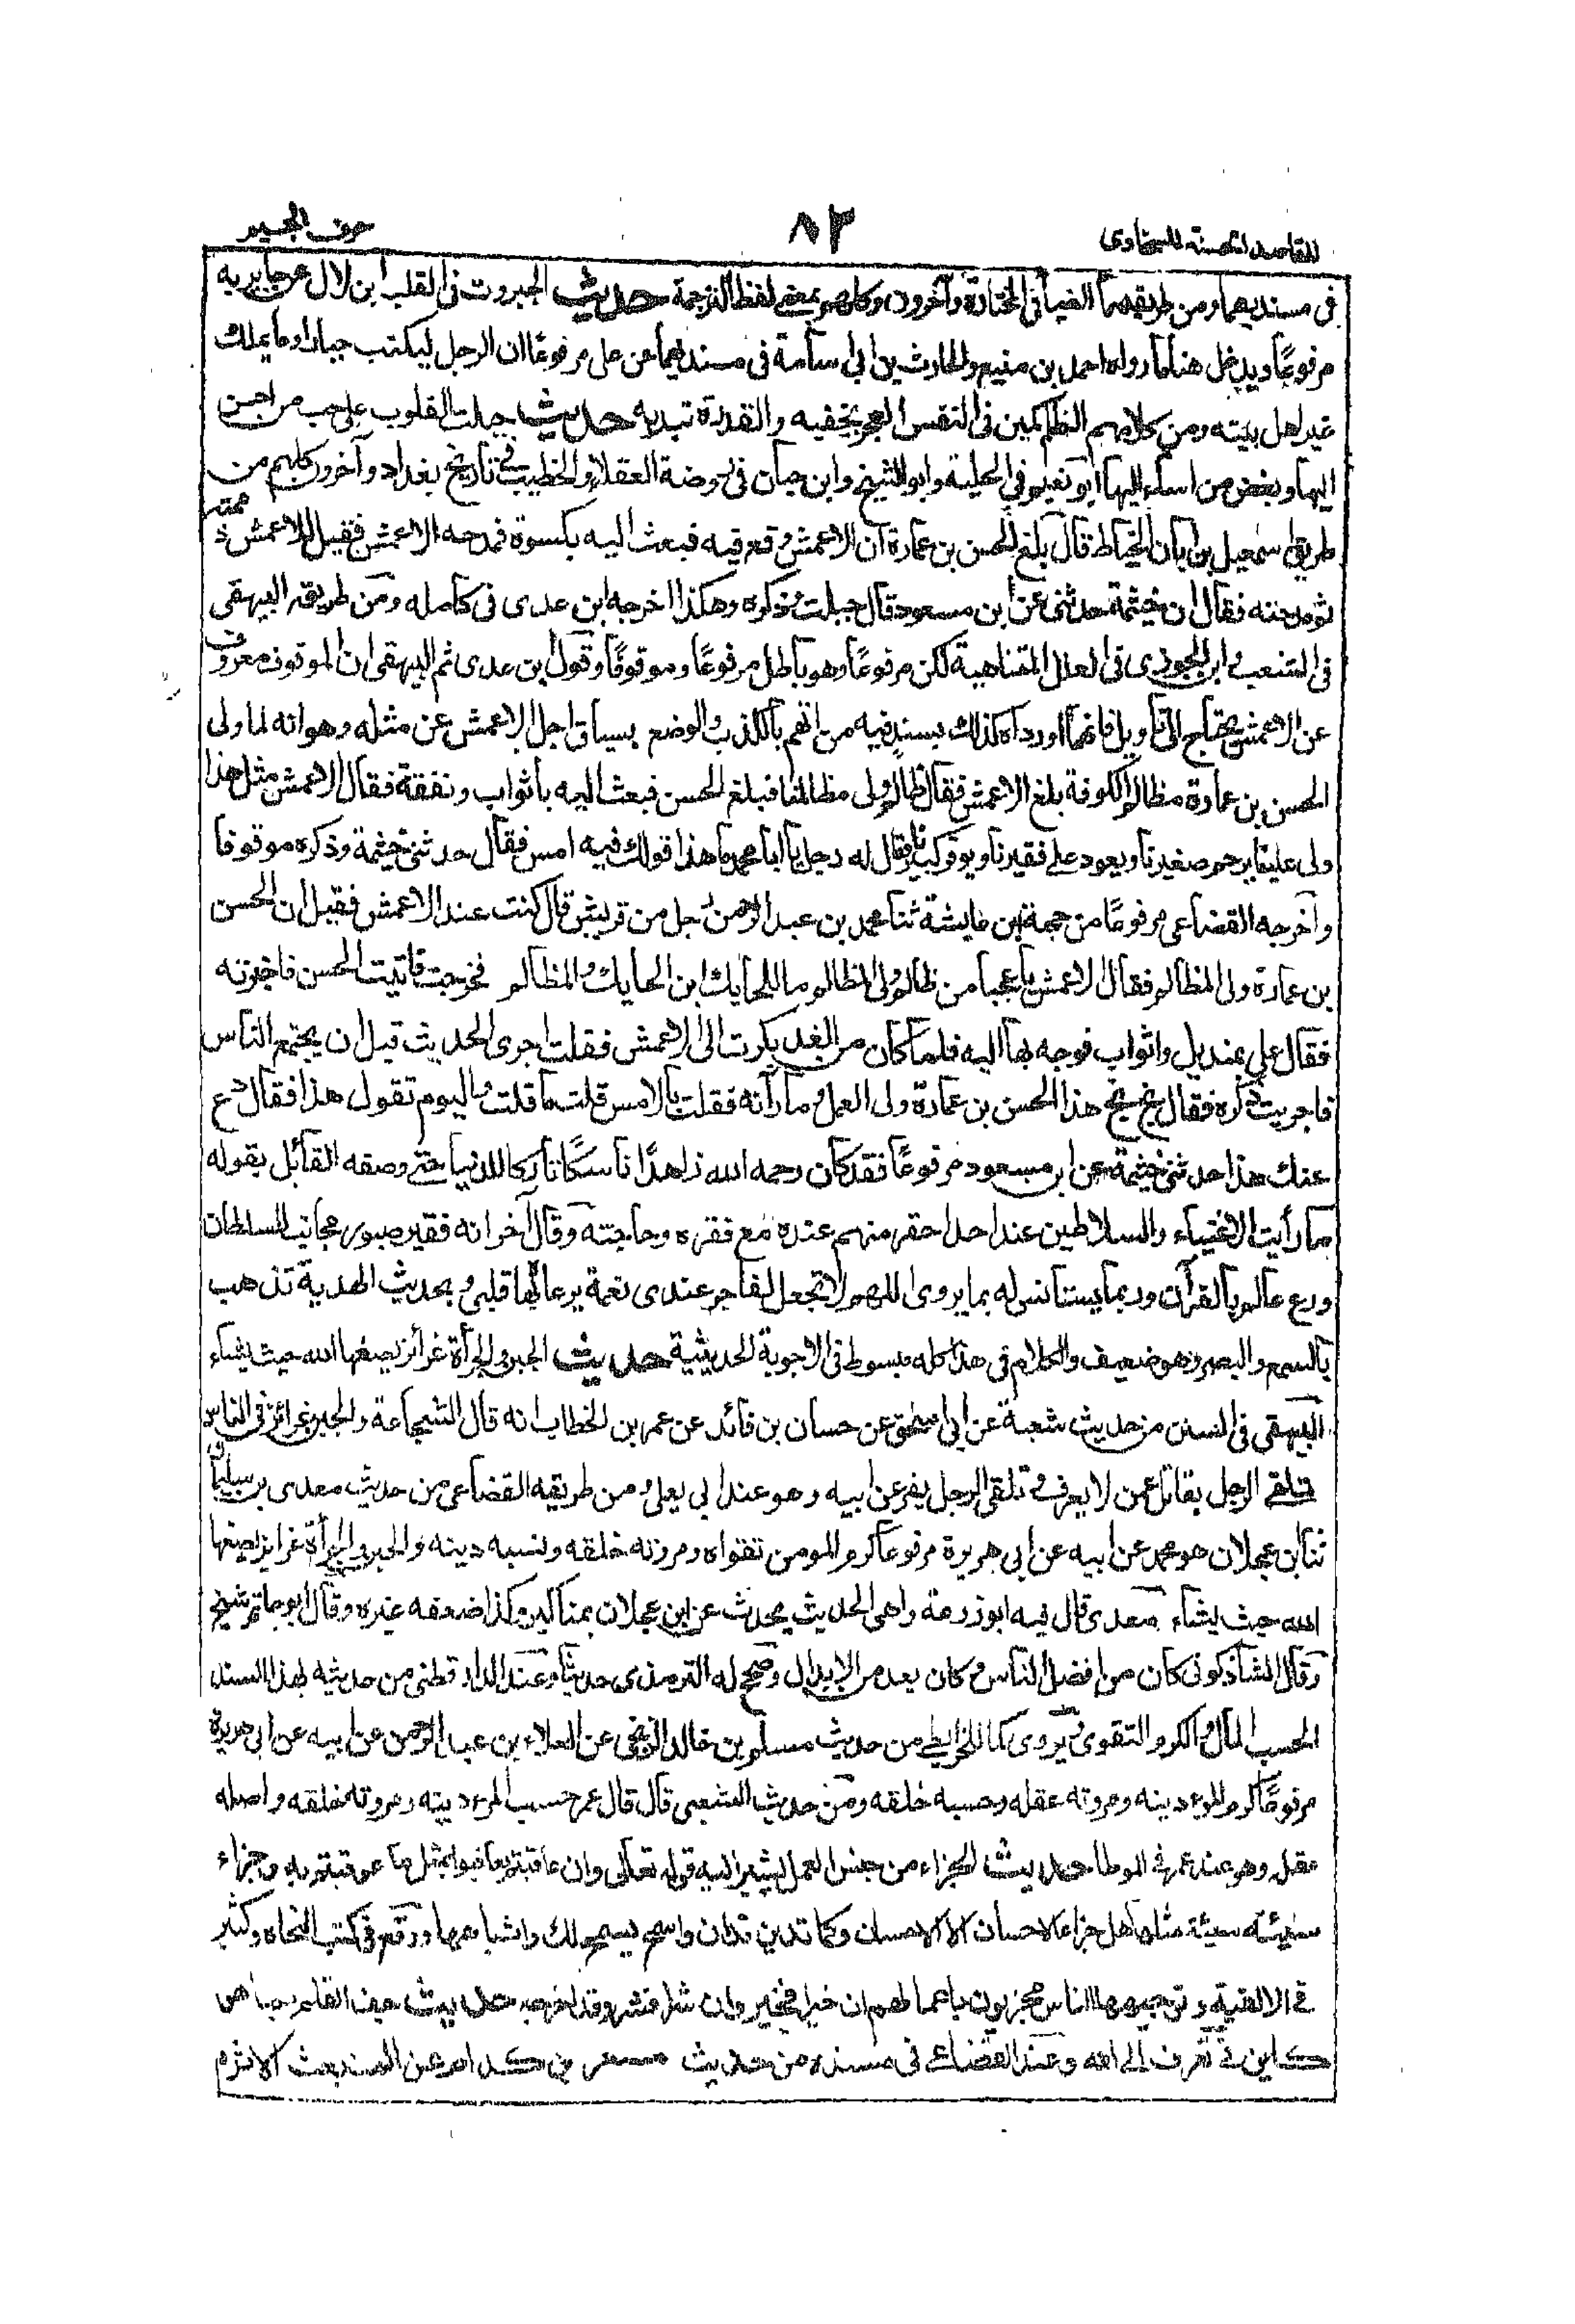 المقاصد الحسنة للسخاوى ٨٣ حرف الجيم
فى مسنديهما ومن طريقهما الضيأ فى المختارة وآخرون وكلهم بمعنى لفظ الترجمة حديث الجبروت فى القلب ابن لال عن جابر به
مرفوعًا ويدخل هنا ما رواه احمد بن منيع والحارث بن ابى اسامة فى مسنديهما عن على مرفوعًا ان الرجل ليكتب جبارا وما يملك
غير اهل بيته ومن كلامهم الظلم كمين فى النفس العجز يخفيه والقدرة تبديه حديث جبلت القلوب على حب من احسن
اليها وبغض من اساء اليها ابو نعيم فى الحلية وابو الشيخ وابن حبان فى روضة العقلاء والخطيب فى تاريخ بغداد وآخرون كلهم من
طريق اسمعيل بن ابان الخياط قال بلغ الحسن بن عمارة ان الاعمش وقع فيه فبعث اليه بكسوة فمدحه الاعمش فقيل للاعمش ذممته
ثم مدحته فقال ان خيثمة حدثنى عن ابن مسعود قال جبلت وذكره وهكذا اخرجه ابن عدى فى كامله ومن طريقه البيهقى
فى الشعب وابن الجوزى فى العلل المتناهية لكن مرفوعًا وهو باطل مرفوعًا وموقوفًا وقول ابن عدى ثم البيهقى ان الموقوف معروف
عن الاعمش يحتاج الى تأويل فانهما اورداه كذلك بسند فيه من اتهم بالكذب والوضع بسياق اجل الاعمش عن مثله وهو انه لما ولى
الحسن بن عمارة مظالم الكوفة بلغ الاعمش فقال ظالم ولى مظالمنا فبلغ الحسن فبعث اليه بأثواب ونفقة فقال الاعمش مثل هذا
ولى علينا يرحم صغيرنا ويعود على فقيرنا ويوقر كبيرنا فقال له رجل يا ابا محمد ما هذا قولك فيه امس فقال حدثنى خيثمة وذكره موقوفا
وآخرجه القضاعى مرفوعًا من جهة ابن عايشة ثنا محمد بن عبد الرحمن رجل من قريش قال كنت عند الاعمش فقيل ان الحسن
بن عمارة ولى المظالم فقال الاعمش يا عجبا من ظالم ولى المظالم ما للحايك ابن الحايك والمظالم فخرجت فاتيت الحسن فاخبرته
فقال على بمنديل واثواب فوجه بها اليه فلما كان من الغد بكرت الى الاعمش فقلت اجرى الحديث قبل ان يجتمع الناس
فاجريت ذكره فقال بخ بخ هذا الحسن بن عمارة ولى العمل وما زانه فقلت بالامس قلت ما قلت واليوم تقول هذا فقال دع
عنك هذا حدثنى خيثمة عن ابن مسعود مرفوعًا فقد كان رحمه الله زاهدًا ناسكًا تاركا للدنيا حتى وصفه القائل بقوله
ما رأيت الاغنياء والسلاطين عند احد احقر منهم عنده مع فقره وحاجته وقال آخر انه فقير صبور مجانب للسلطان
ورع عالم بالقرآن وربما يستأنس له بما يروى اللهم لا تجعل لفاجر عندى نعمة يرعاه بها قلبى وبحديث الهدية تذهب
بالسمع والبصر وهو ضعيف والكلام فى هذا كله مبسوط فى الاجوبة الحديثية حديث الجبن والجرأة غرائز يضعها الله حيث يشاء
البيهقى فى السنن من حديث شعبة عن ابى اسحق عن حسان بن فائد عن عمر بن الخطاب انه قال الشجاعة والجبن غرائز فى الناس
تلقى الرجل يقاتل عمن لا يعرف وتلقى الرجل يفر عن ابيه وهو عند ابى يعلى ومن طريقه القضاعى من حديث معدى بن سليمان
ثنا ابن عجلان هو محمد عن ابيه عن ابى هريرة مرفوعا كرم المومن تقواه ومروته خلقه ونسبه دينه والجبن والجرأة غرايز يضعها
الله حيث يشاء معدى قال فيه ابو زرعة واهى الحديث يحدث عن ابن عجلان بمناكير وكذا ضعفه غيره وقال ابو حاتم شيخ
وقال الشاذكونى كان من افضل الناس وكان يعد من الابدال وصحح له الترمذى حديثا وعند الدارقطنى من حديثه بهذا السند
الحسب المال والكرم التقوى ويروى كما للخرايطى من حديث مسلم بن خالد الزنجى عن العلاء بن عبد الرحمن عن ابيه عن ابى هريرة
مرفوعًا كرم المرء دينه ومروته عقله وحسبه خلقه ومن حديث الشعبى قال قال عمر حسب المرء دينه ومروته خلقه واصله
عقله وهو عند عمر فى الموطا حديث الجزاء من جنس العمل يشير اليه قوله تعالى وان عاقبتم فعاقبوا بمثل ما عوقبتم به وجزاء
سيئة سيئة مثلها هل جزاء الاحسان الا الاحسان وكما تدين تدان واسمح يسمح لك واشباهها ووقع فى كتب النحاة وكثير
فى الالفية الناس مجزيون باعمالهم ان خيرا فخير وان شرا فشر حديث جف القلم بما هو
كاين فى تعرف الى الله وعند القضاعى فى مسنده من حديث